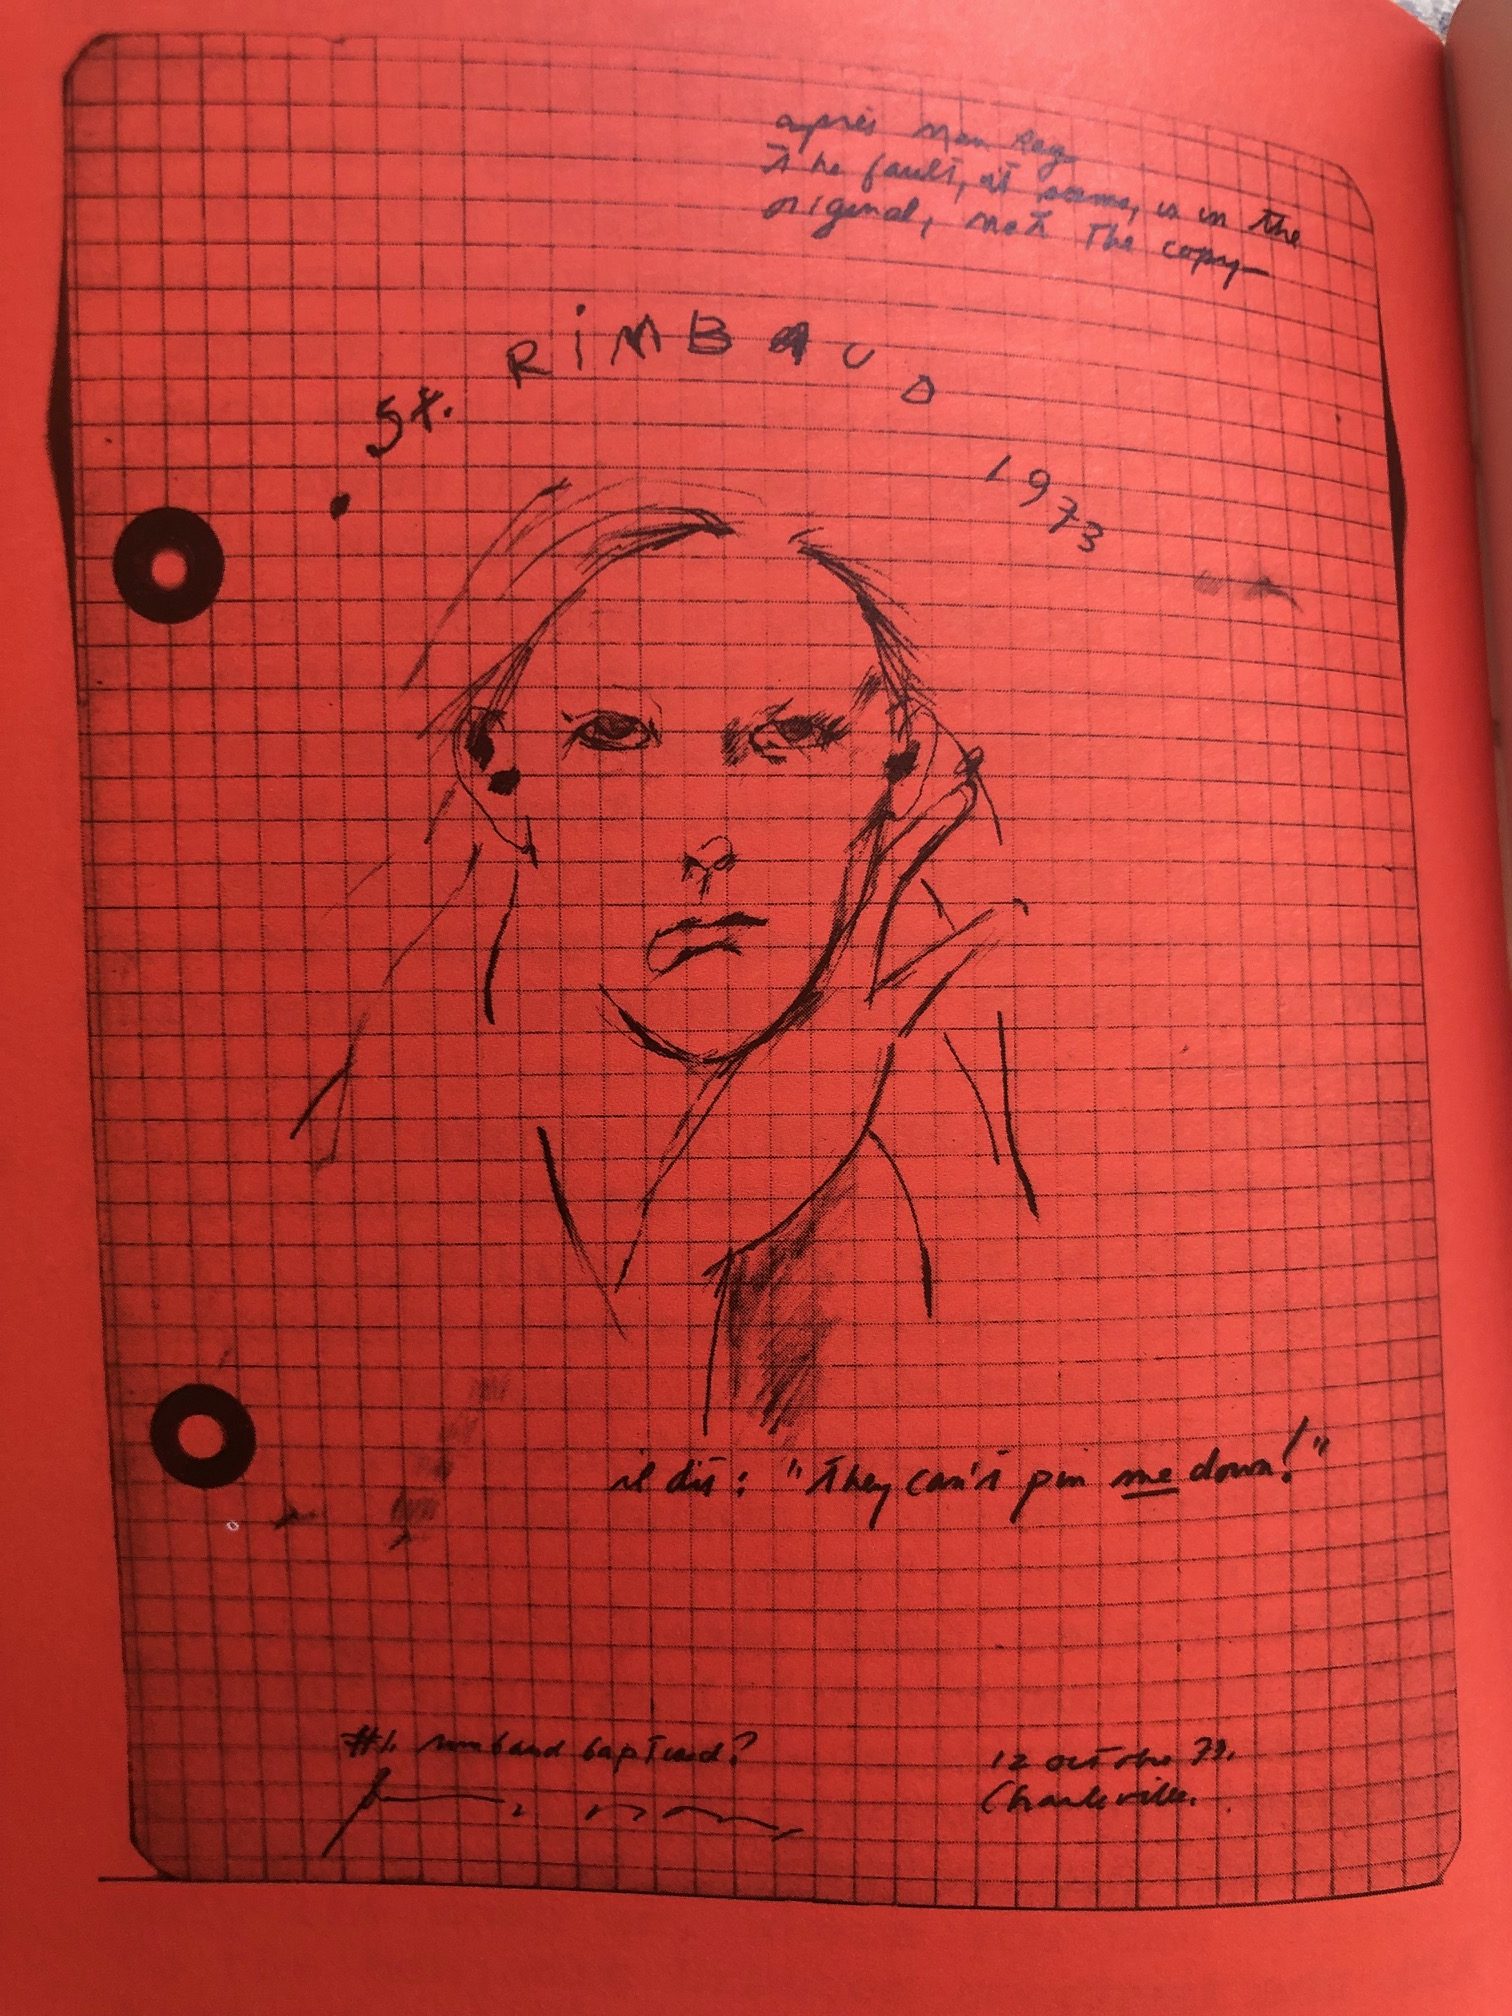 après Man Ray
the fault, it seems, is in the
original, not the copy—
St. RiMBAUD 1973
il dit: "they can't pin me down!"
#1. rimbaud baptised?
12 octobre 73.
Charleville.